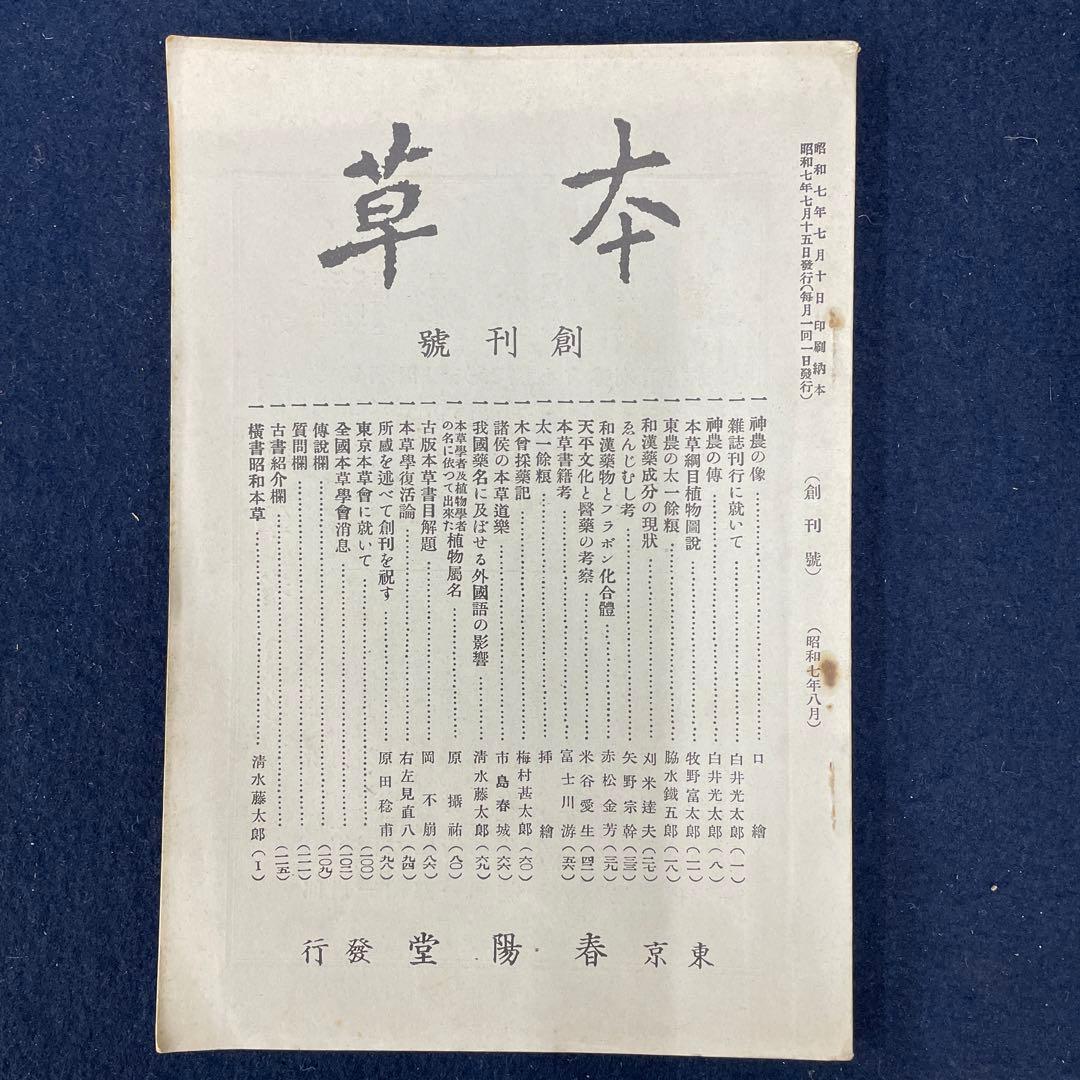 昭和七年七月十日印刷納本
昭和七年七月十五日發行(每月一回一日發行)
(創刊號)
(昭和七年八月)
本草
創刊號
一 神農の像……口繪
一 雜誌刊行に就いて……白井光太郎(一)
一 神農の傳……白井光太郎(八)
一 本草綱目植物圖說……牧野富太郎(一一)
一 東農の太一餘粮……脇水鐵五郎(一八)
一 和漢藥成分の現狀……刈米達夫(二七)
一 ゑんじむし考……矢野宗幹(三三)
一 和漢藥物とフラボン化合體……赤松金芳(三九)
一 天平文化と醫藥の考察……米谷愛生(四二)
一 本草書籍考……富士川游(五六)
一 太一餘粮……挿繪
一 木曾採藥記……梅村甚太郎(六〇)
一 諸侯の本草道樂……市島春城(六六)
一 我國藥名に及ぼせる外國語の影響……淸水藤太郎(六九)
一 本草學者及植物學者の名に依つて出來た植物屬名……原攝祐(八〇)
一 古版本草書目解題……岡不崩(八六)
一 本草學復活論……右左見直八(九四)
一 所感を述べて創刊を祝す……原田稔甫(九八)
一 東京本草會に就いて……(一〇〇)
一 全國本草學會消息……(一〇二)
一 傳說欄……(一〇九)
一 質問欄……(一一一)
一 古書紹介欄……(一一五)
一 橫書昭和本草……淸水藤太郎(1)
東京 春陽堂 發行